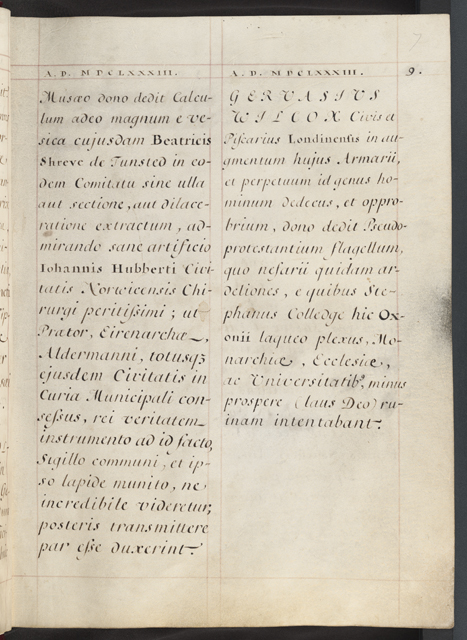 A. D. MDCLXXXIII.
Musæo dono dedit Calcu-
lum adeo magnum e ve-
sica cujusdam Beatricis
Shreve de Tunsted in eo-
dem Comitatu sine ulla
aut sectione, aut dilace-
ratione extractum, ad-
mirando sane artificio
Iohannis Hubberti Civi-
tatis Norwicensis Chi-
rurgi peritiſsimi; ut
Prætor, Eirenarchæ,
Aldermanni, totusqꝫ
ejusdem Civitatis in
Curia Municipali con-
seſsus, rei veritatem
instrumento ad id facto,
Sigillo communi, et ip-
so lapide munito, ne
incredibile videretur,
posteris transmittere
par eſse duxerint.
A. D. MDCLXXXIII. 9.
GERVASIVS
WILCOX Civis et
Piſcarius Londinensis in au-
gmentum hujus Armarii,
et perpetuum id genus ho-
minum dedecus, et oppro-
brium, dono dedit Pseudo-
protestantium flagellum,
quo nefarii quidam ar-
deliones, e quibus Ste-
phanus Colledge hic Ox-
onii laqueo plexus, Mo-
narchiæ, Ecclesiæ,
ac Vniversitatibꝰ, minus
prospere (laus Deo) ru-
inam intentabant.